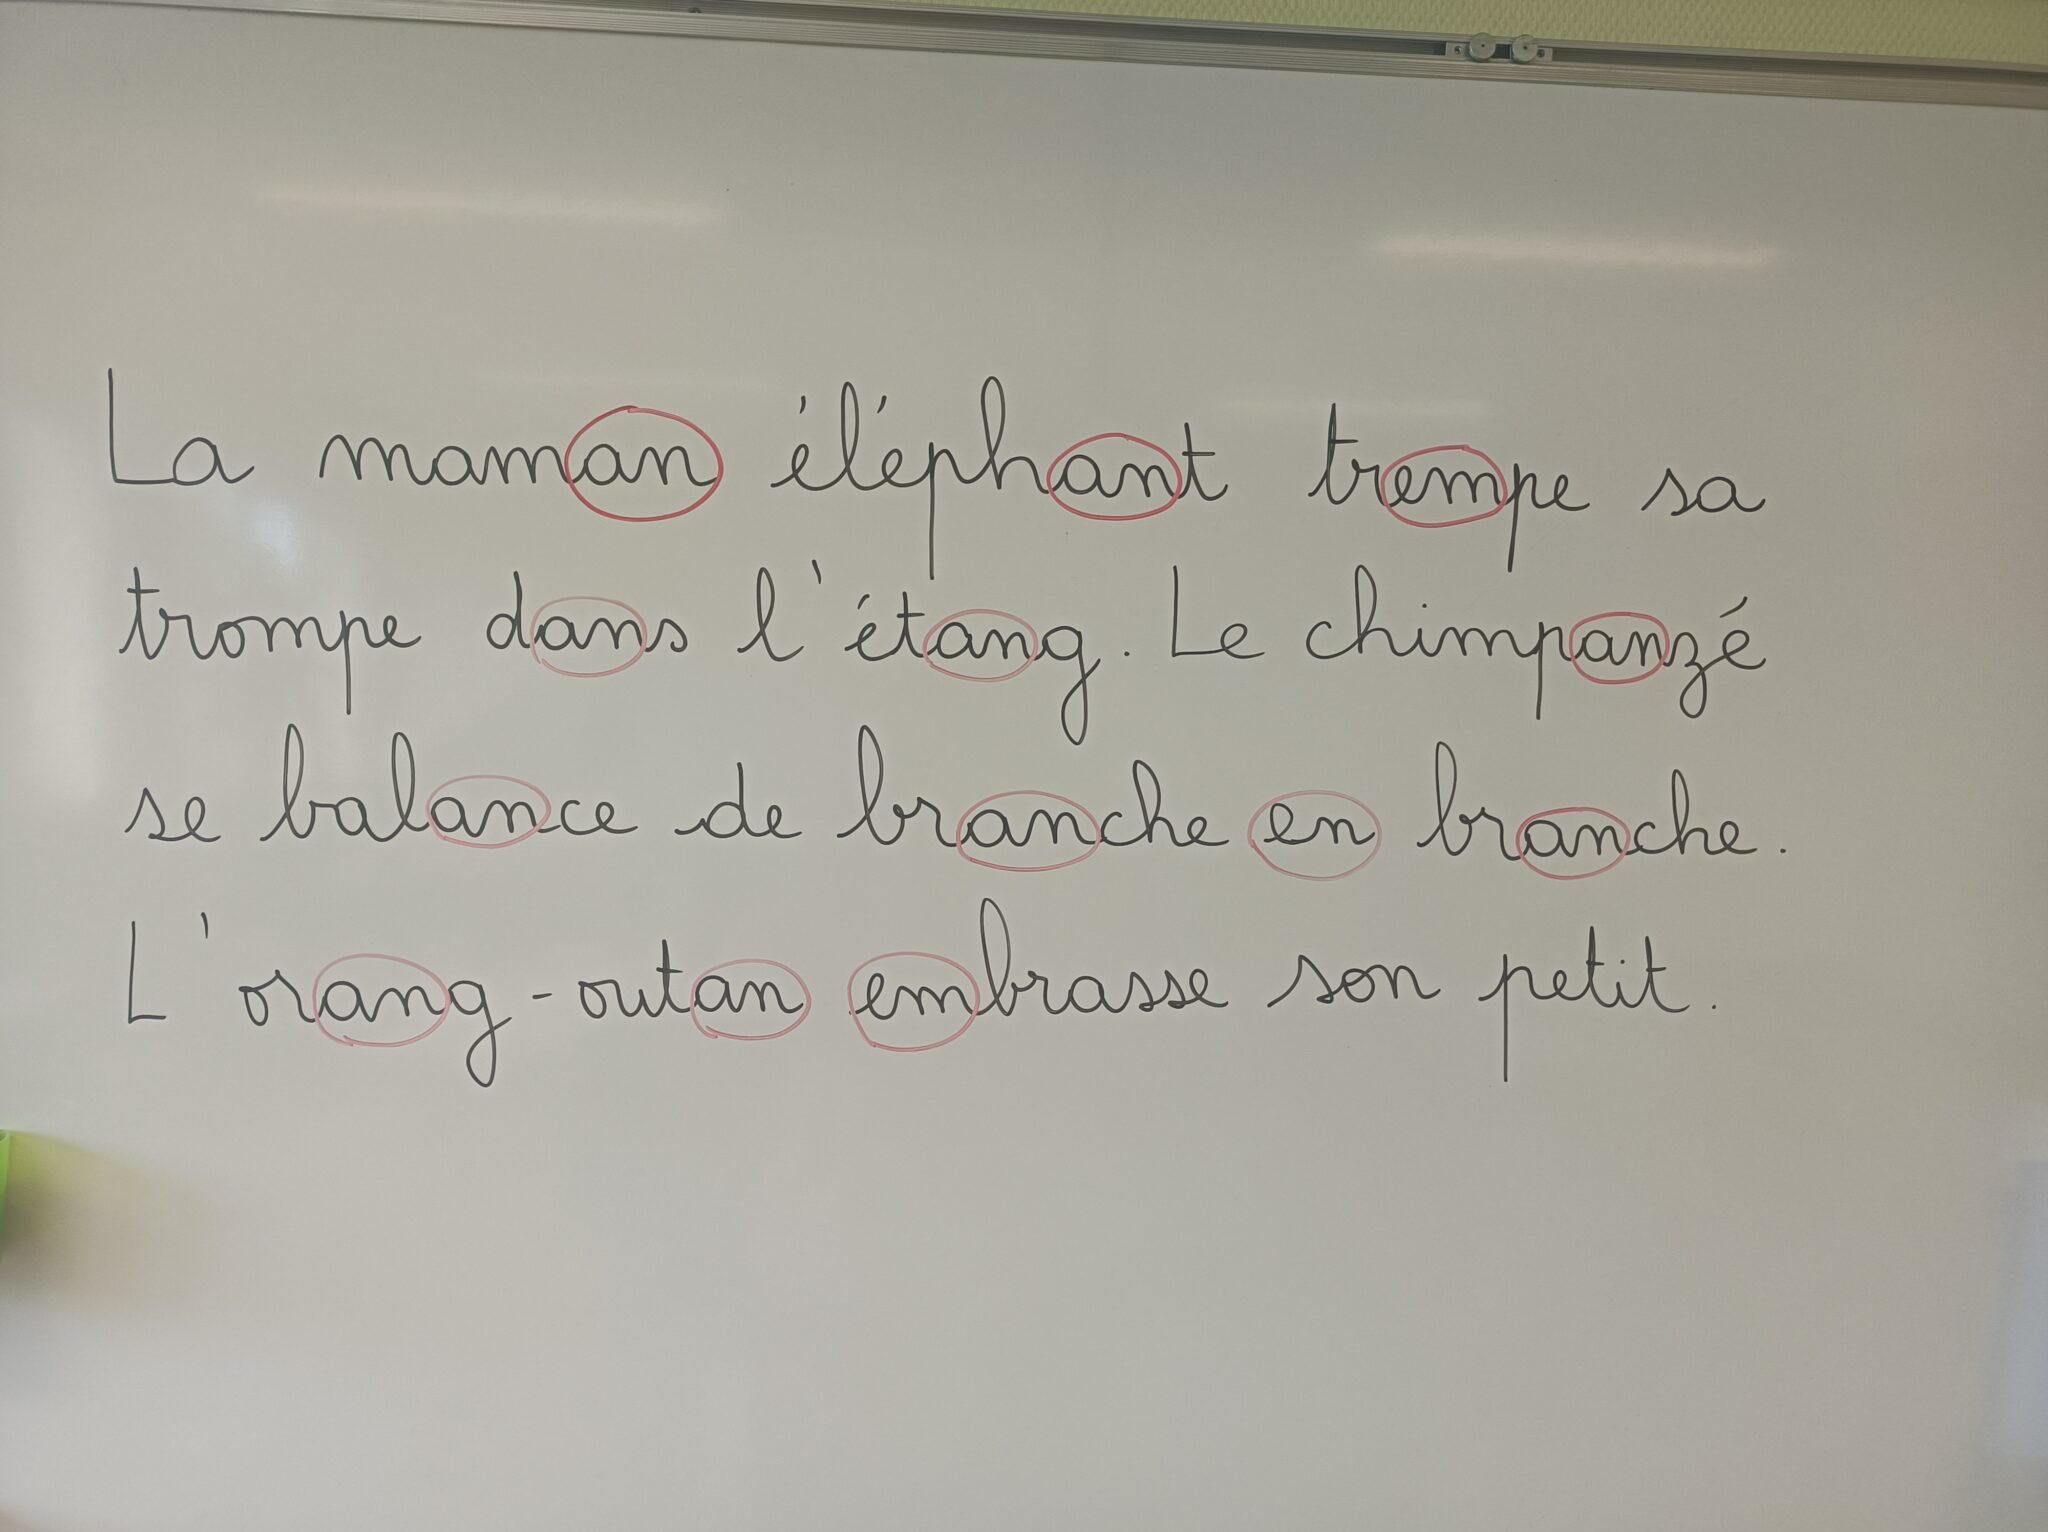 La maman éléphant trempe sa
trompe dans l'étang. Le chimpanzé
se balance de branche en branche.
L'orang-outan embrasse son petit.